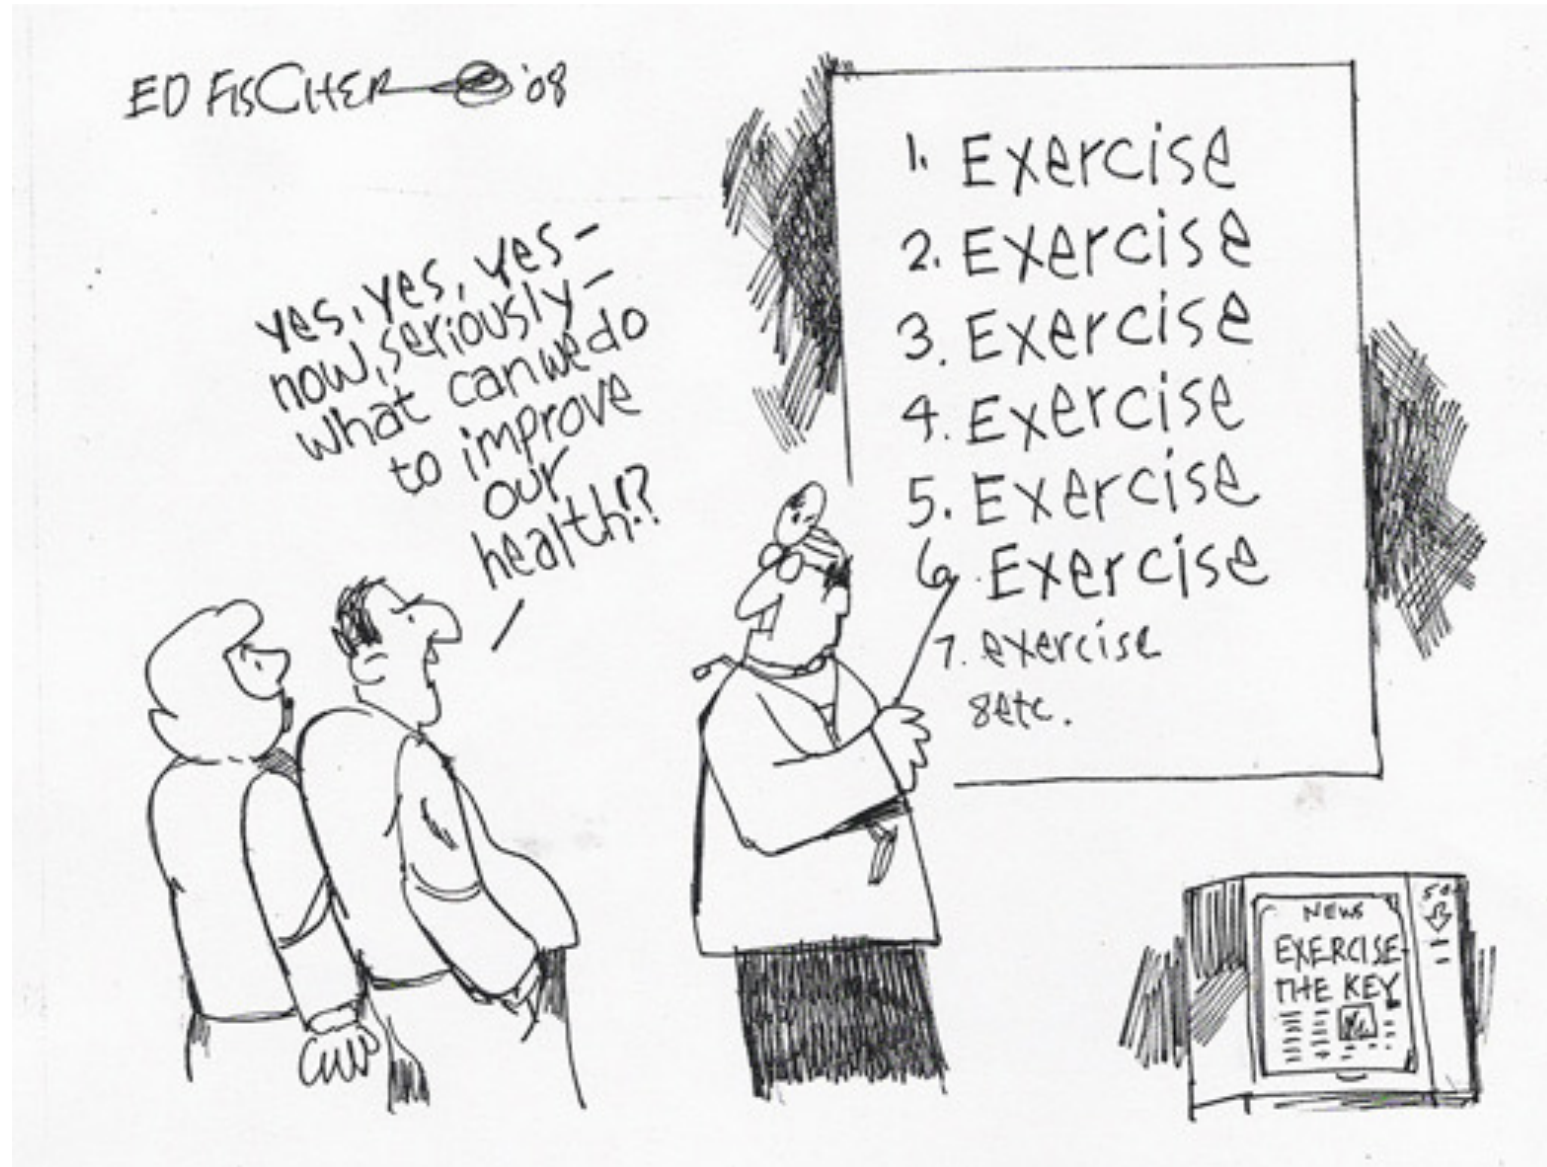 ED FISCHER '08
yes, yes, yes -
now, seriously -
what can we do
to improve
our
health!?
1. Exercise
2. Exercise
3. Exercise
4. Exercise
5. Exercise
6. Exercise
7. exercise
8 etc.
NEWS
EXERCISE-
THE KEY